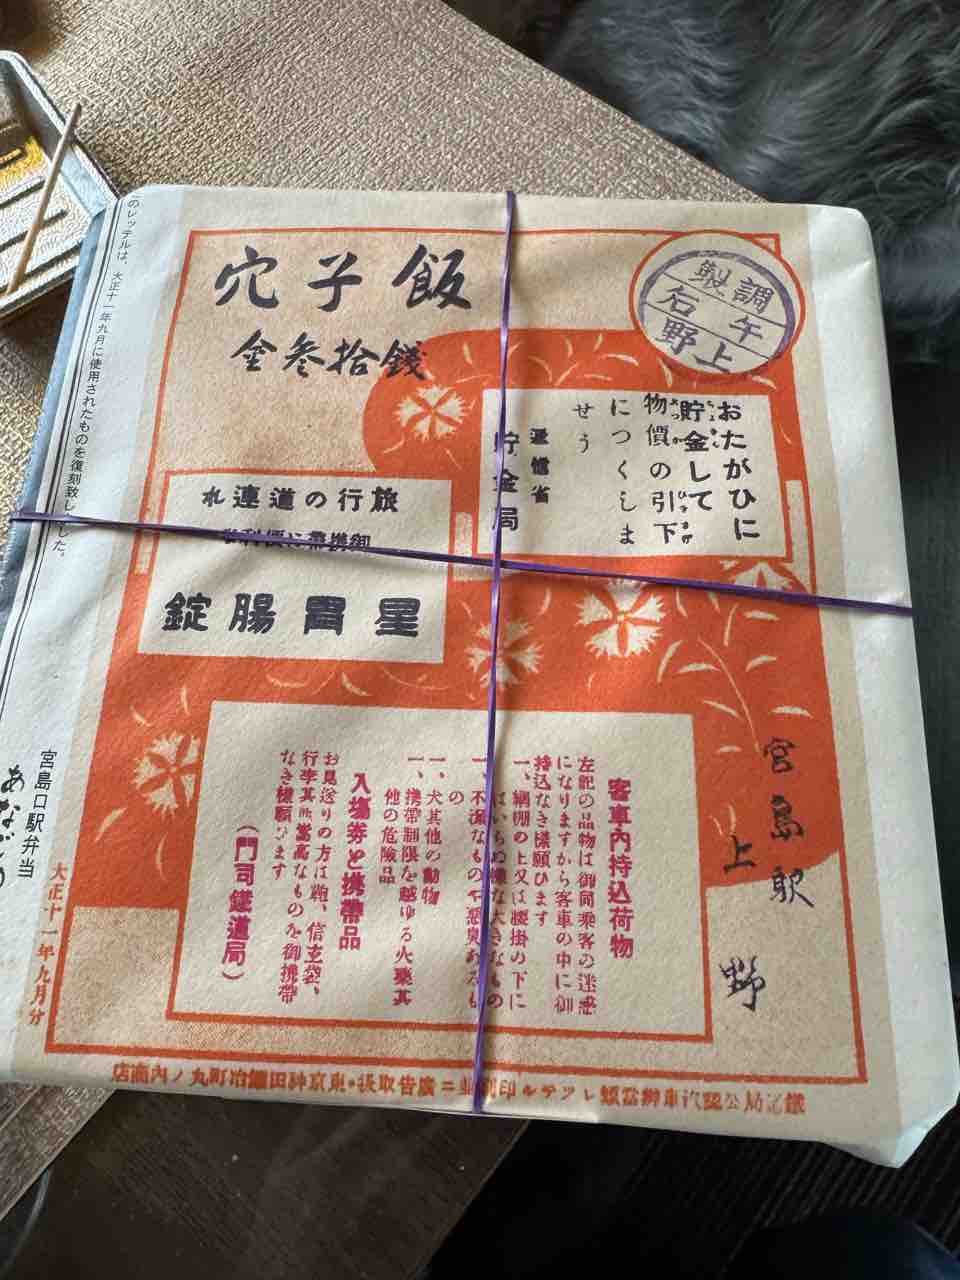 飯子穴
金参拾銭
調
製
午
石
上
野
おたがひに
貯金して
物價の引下
につくしま
せう
逓信省
貯金局
旅行の道連れ
御携帯に便利な
星胃腸錠
宮島駅
上
野
客車内持込荷物
左記の品物は御同乗客の迷惑
になりますから客車の中に御
持込なき様願ひます
一、網棚の上又は腰掛の下に
はいらぬ様な大きなもの
一、不潔なものや悪臭あるも
の
一、犬其他の動物
一、携帯制限を越ゆる火薬其
他の危険品
入場券と携帯品
お見送りの方は鞄、信玄袋、
行李其他嵩高なものを御携帯
なき様願ひます
(門司鐵道局)
のレッテルは、大正十一年九月に使用されたものを復刻致しました。
宮島口駅弁当
あなごう
大正十一年九月分
鐵道局公認汽車辨當類レッテル印刷並ニ廣告取扱・東京神田鍛冶町丸ノ内商店